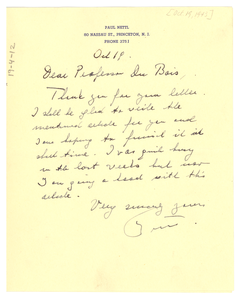 PAUL NETTL
60 NASSAU ST., PRINCETON, N. J.
PHONE 275J
Oct 19.
Dear Professor Du Bois,
Thank you for your letter.
I shall be glad to write the
mentioned article for you and
I am hoping to furnish it in
short time. I was quite busy
in the last weeks but now
I am going ahead with this
article.
Very sincerely yours